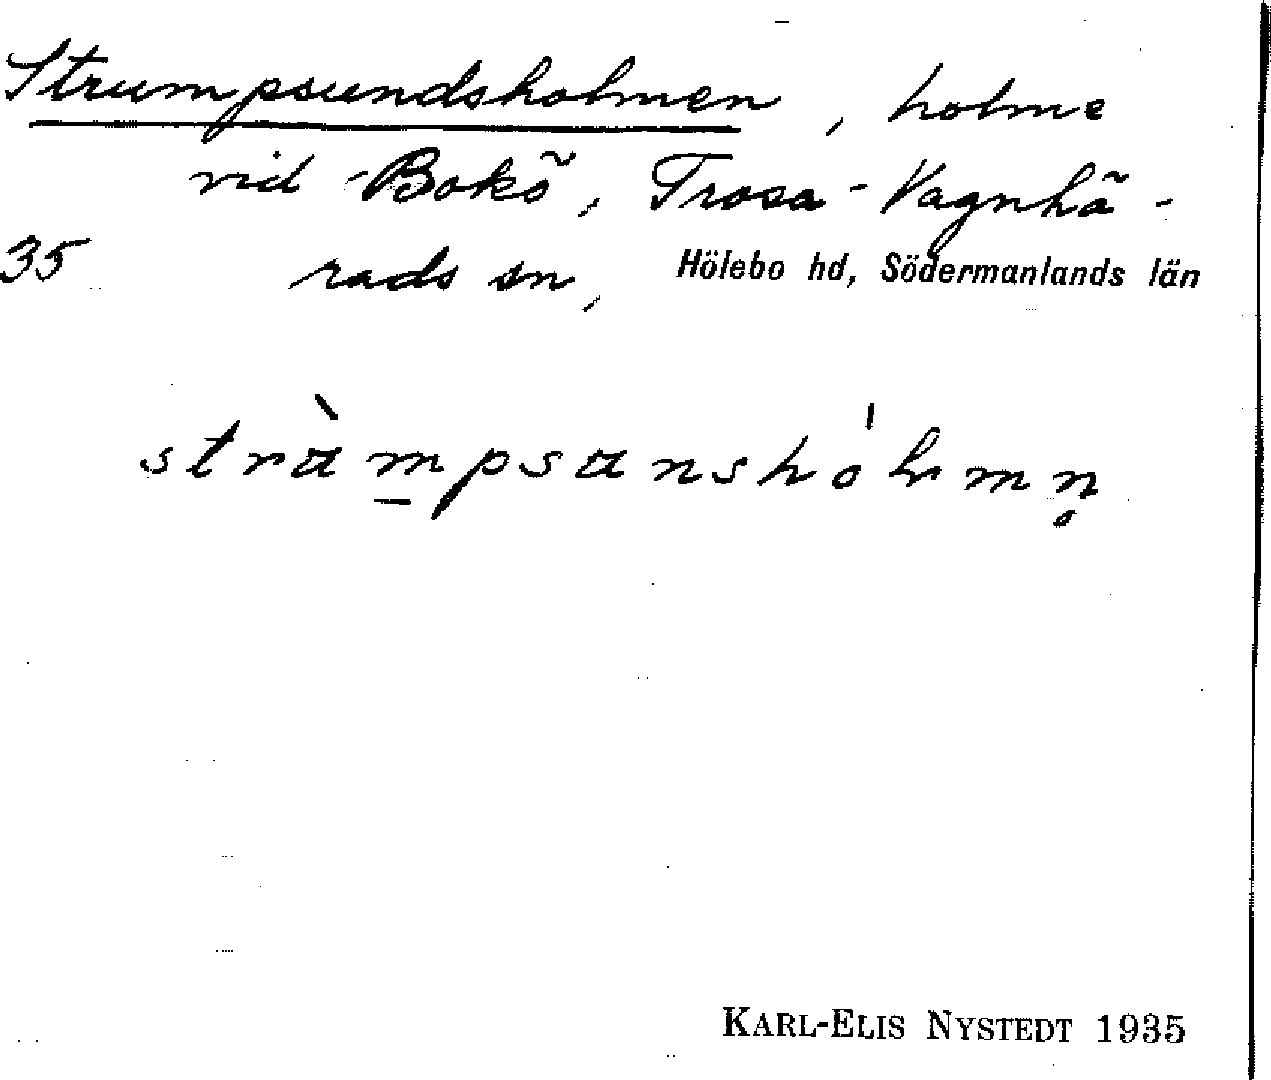 Strumpsundsholmen, holme
vid Bokö, Trosa-Vagnhä-
35 rads sn, Hölebo hd, Södermanlands län
KARL-ELIS NYSTEDT 1935